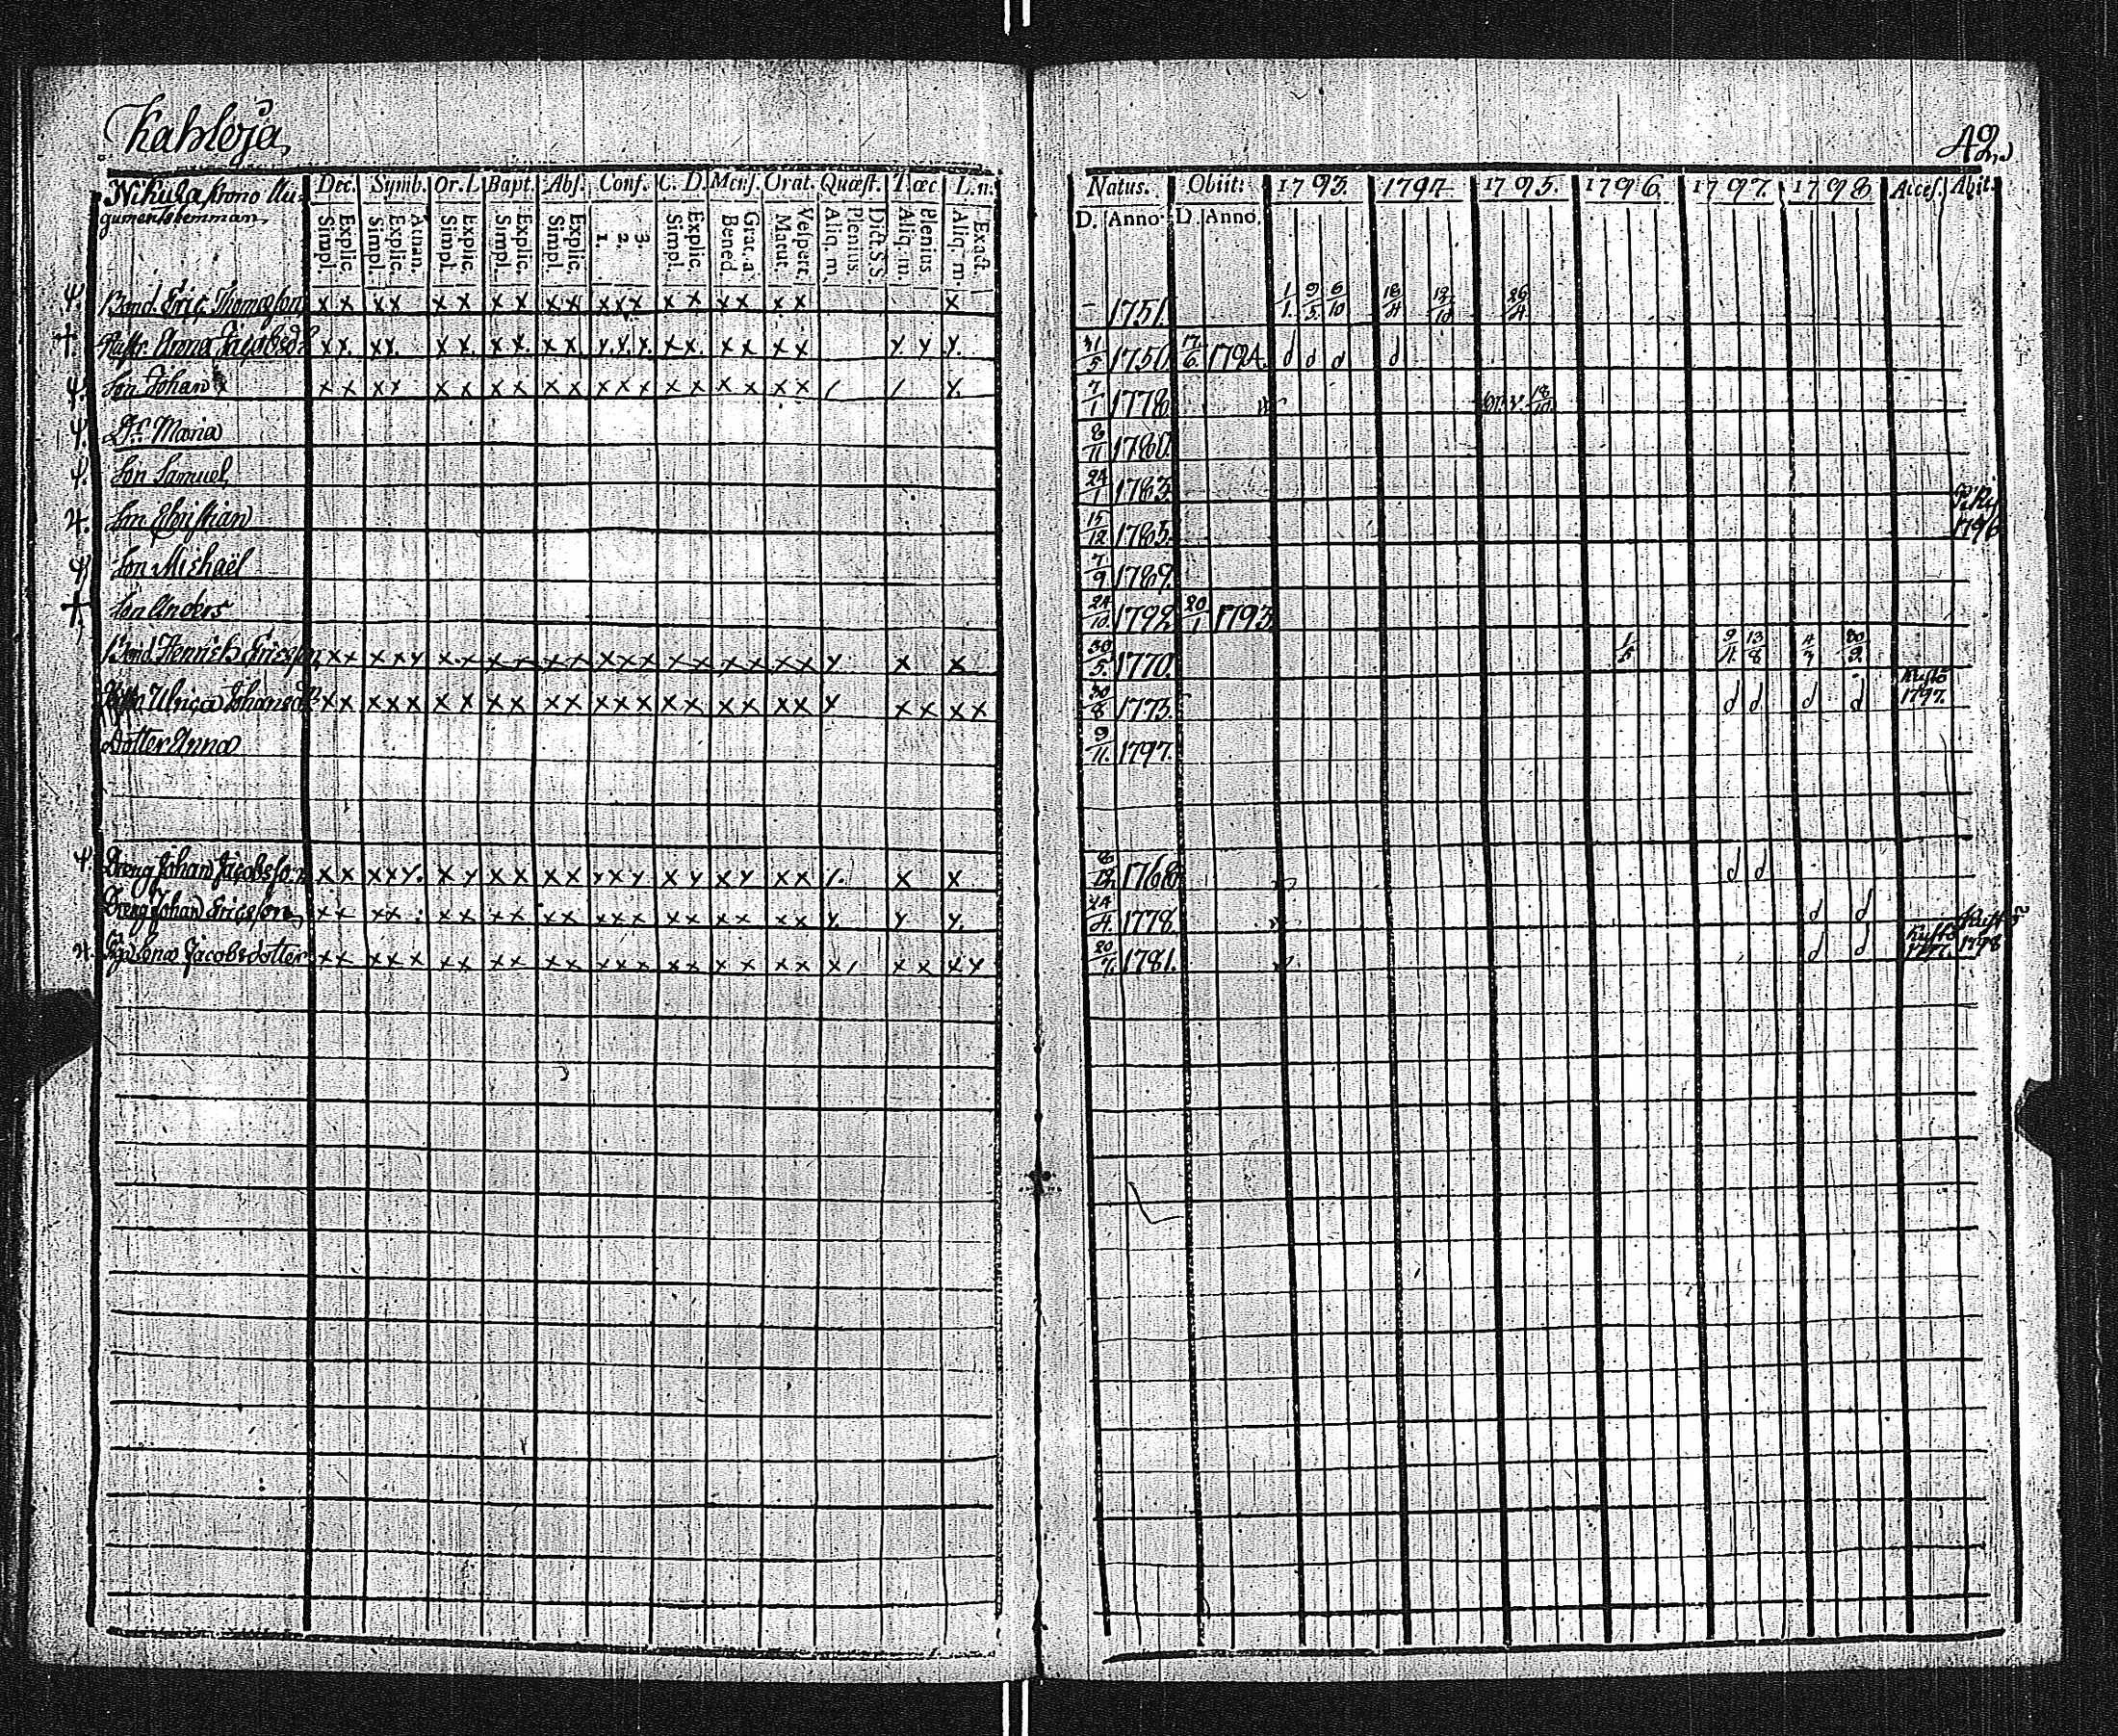 Kahloja
42
Nikula krono Au-
gumentshemman
Dec. Symb. Or. D. Bapt. Abs. Conf. C. D. Mens. Orat. Quæst. T. œc L. n.
Simpl. Explic. Simpl. Explic. Athan. Simpl. Explic. Simpl. Explic. Simpl. Explic. 1. 2. 3. Simpl. Explic. Bened. Grat. a. Matut. Vespert. Aliq. m. Plenius. Dict. S. S. Aliq. m. Plenius. Aliq. m. Exact.
Natus. Obiit: 1793. 1794. 1795. 1796. 1797. 1798 Acces. Abit.
D. Anno D. Anno.
Bond. Eric Thomasson x x x x x x x x x x x x x x x x x x x x 1751. 1/1. 9/5. 6/10 18/4 12/10 26/4
Hustr. Anna Jacobsd:r x x. x x. x x. x x. x x x. x. x. x x. x x x x x x x. 31/5 1750 17/6. 1794. d d d d
Son Johan x x x x x x x x x x x x x x x x x x x / / x. 7/1 1778 18/10
D:r Maria 8/11 1780.
Son Samuel 24/1 1783
Son Christian 15/12 1785. 1796
Son Michaël 7/9 1789.
Son Anders 24/10 1792 20/1 1793
Bond. Henrich Ericsson x x x x x x x x x x x x x x x x x x x x x x x x 30/5. 1770. 1/5 9/4. 13/8 4/3 30/9.
Ulrica Johansd:r x x x x x x x x x x x x x x x x x x x x x x x x x x 30/8 1775. d d d d Kuftö 1797.
Dotter Anna 9/11. 1797.
Dreng Johan Jacobsson x x x x x. x x x x x x x x x x x x x x x x. x x 1768 d d
Dreng Johan Ericsson x x x x x x x x x x x x x x x x x x x x. x x. 24/4. 1778. d d 1798
Piga Lena Jacobsdotter x x x x x x x x x x x x x x x x x x x x x / x x x x 20/7. 1781. d d Kuftö 1797.